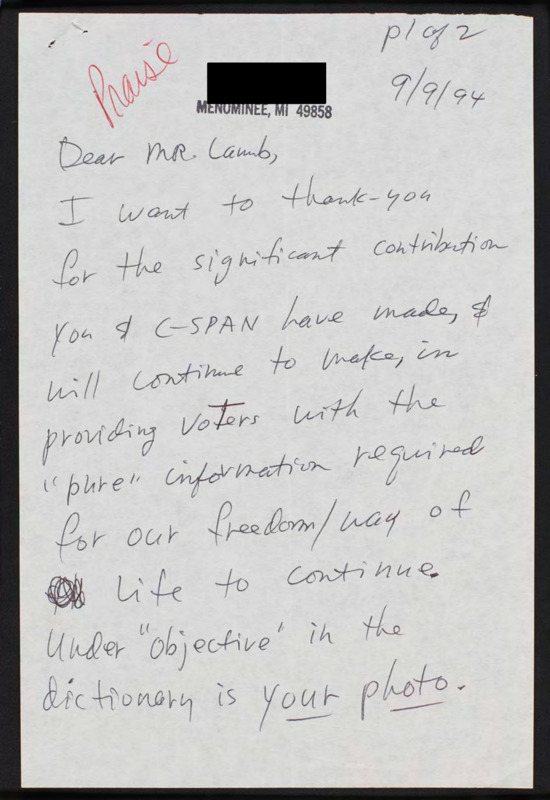 p1 of 2
Praise
9/9/94
MENOMINEE, MI 49858
Dear MR. Lamb,
I want to thank-you
for the significant contribution
you & C-SPAN have made, &
will continue to make, in
providing voters with the
"pure" information required
for our freedom/way of
life to continue.
Under "objective" in the
dictionary is your photo.